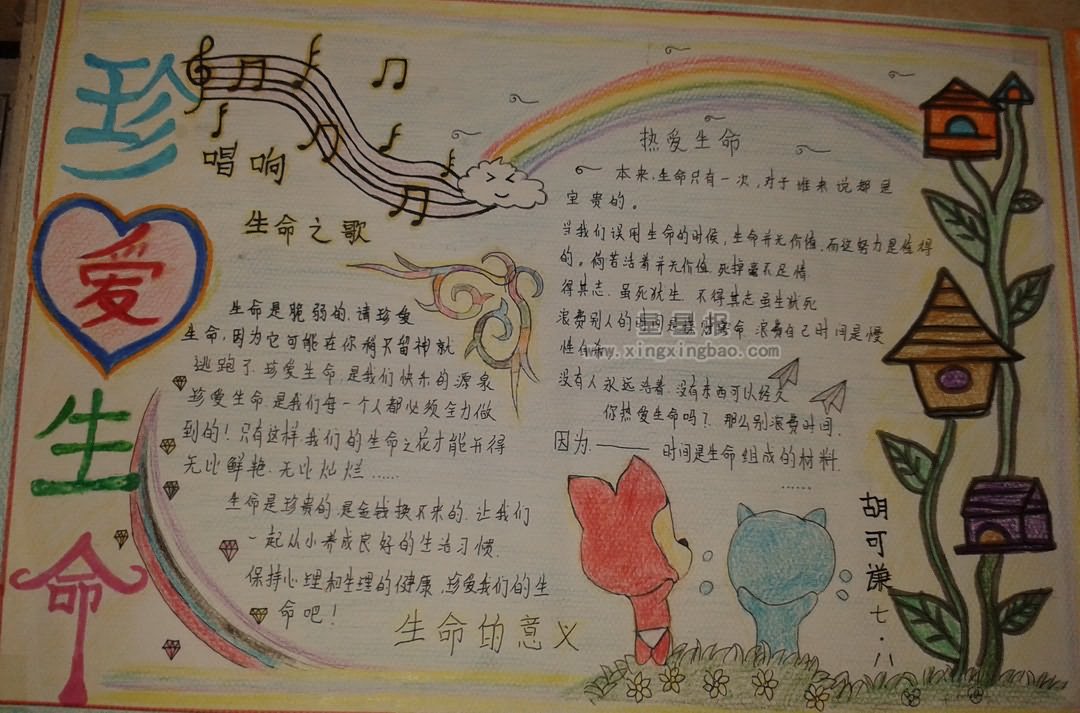 珍爱生命
唱响
生命之歌
生命是脆弱的,请珍爱
生命,因为它可能在你稍不留神就
逃跑了.珍爱生命,是我们快乐的源泉
珍爱生命是我们每一个人都必须全力做
到的!只有这样我们的生命之花才能开得
无比鲜艳.无比灿烂……
生命是珍贵的,是金钱换不来的.让我们
一起从小养成良好的生活习惯.
保持心理和生理的健康,珍爱我们的生
命吧!
生命的意义
热爱生命
本来,生命只有一次,对于谁来说都是
宝贵的。
当我们误用生命的时候,生命并无价值.而这努力是值得
的。倘若活着并无价值.死掉毫不足惜
得其志.虽死犹生.不得其志虽生犹死
浪费别人的时间是谋财害命 浪费自己时间是慢
性自杀
没有人永远活着.没有东西可以经久
你热爱生命吗?那么别浪费时间.
因为——时间是生命组成的材料.
……
胡可谦 七·八
星星报
www.xingxingbao.com